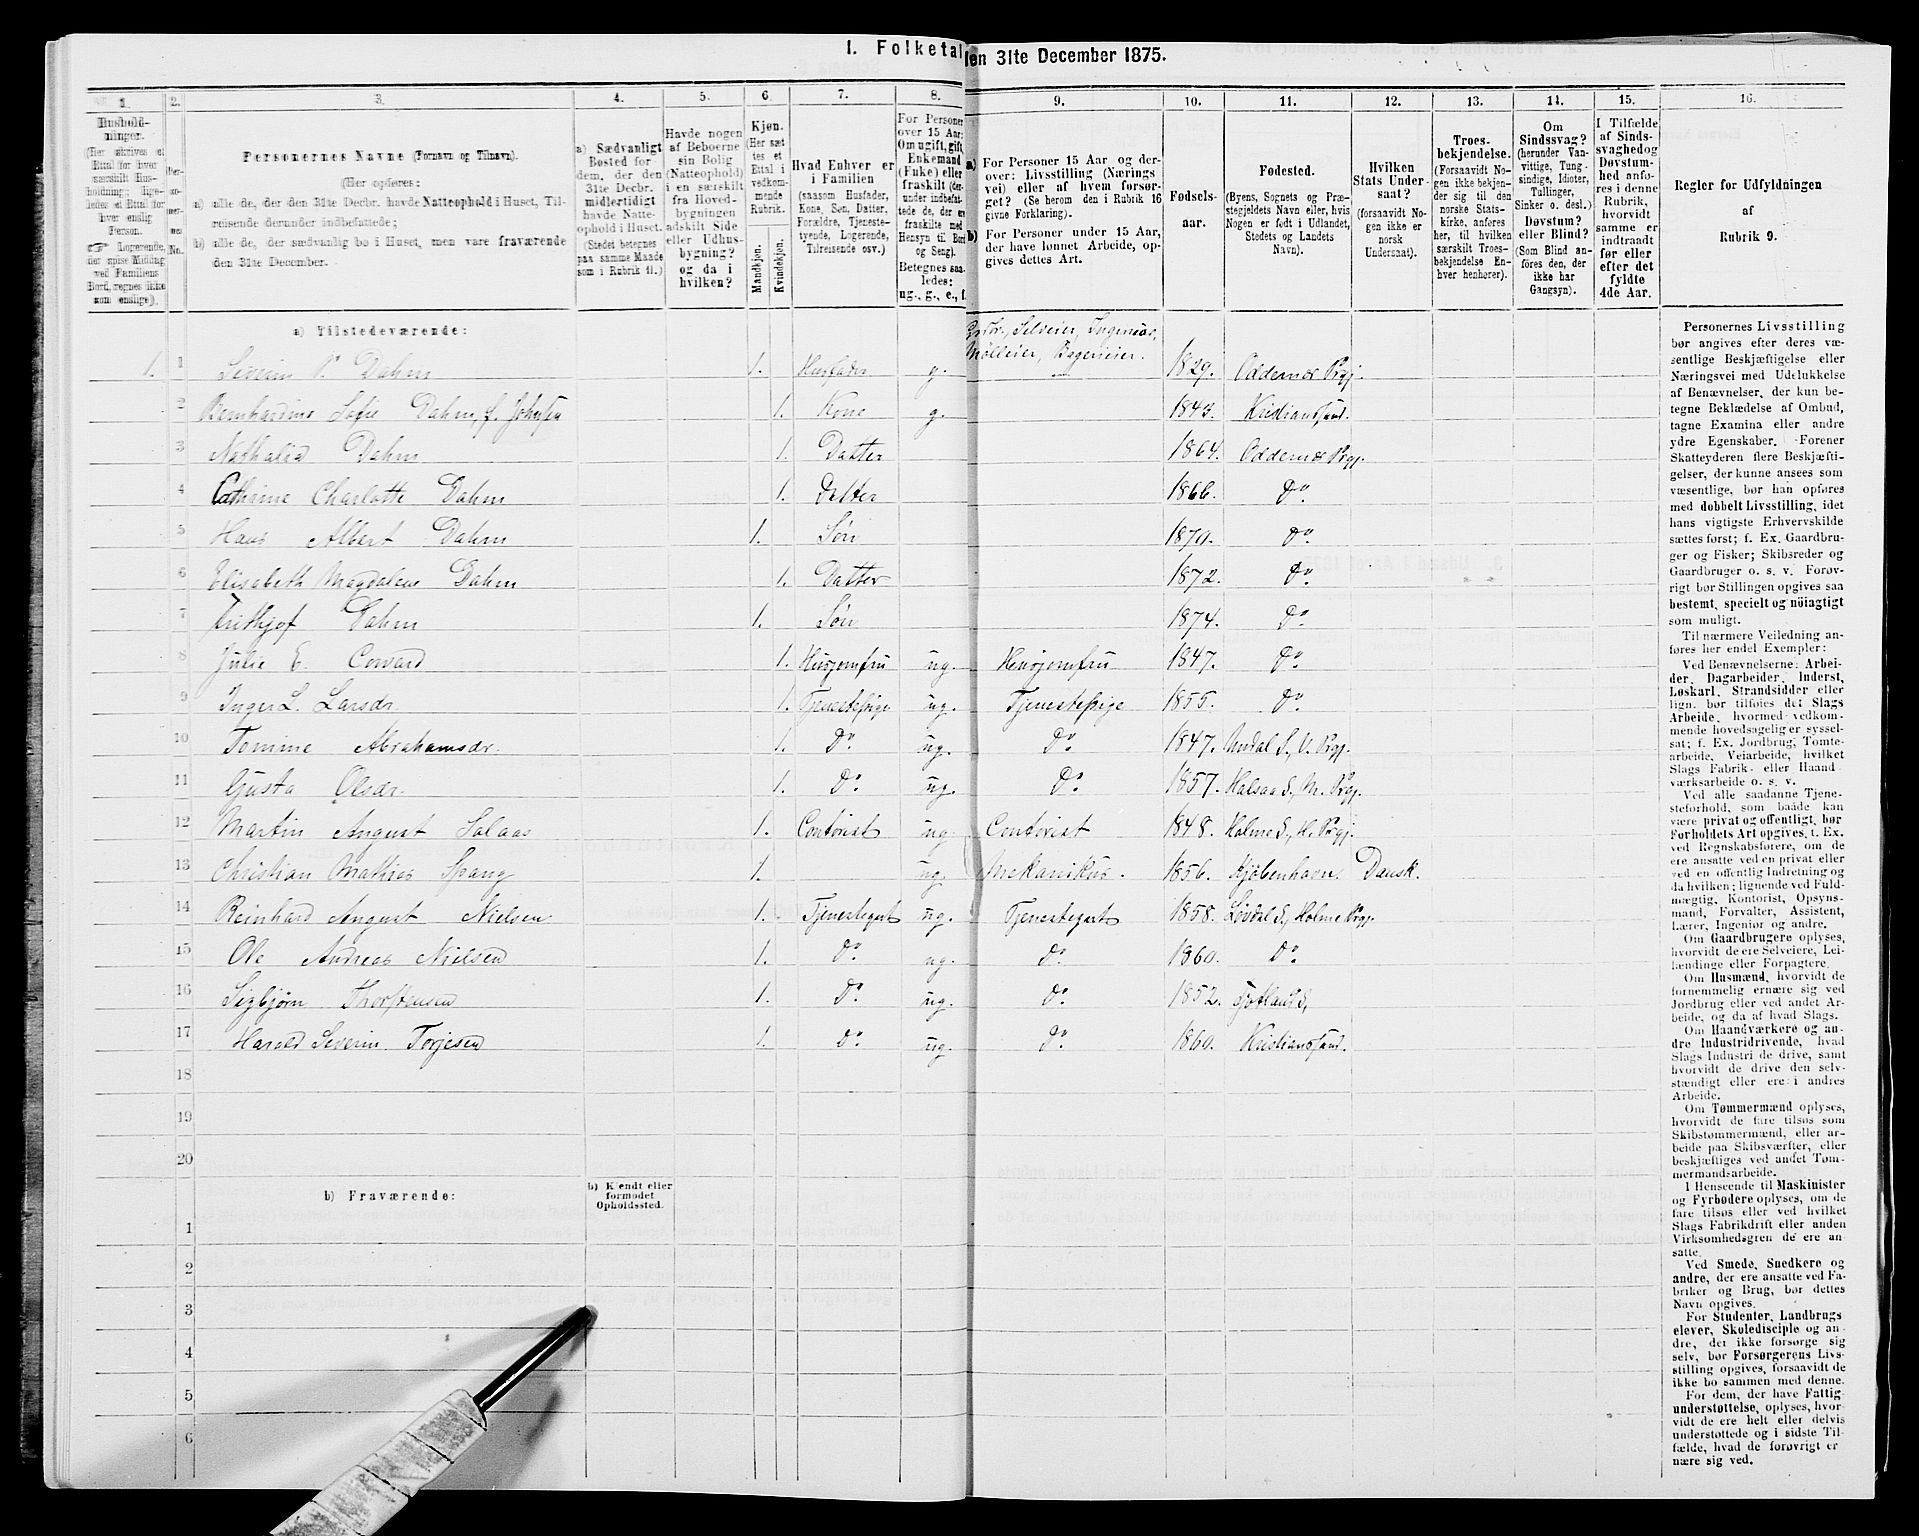 I. Folketal
den 31te December 1875.
1.
2.
3.
4.
5.
6.
7.
8.
9.
10.
11.
12.
13.
14.
15.
16.
Hushold-
ninger.
(Her skrives et
Ettal for hver
særskilt Hus-
holdning; lige-
ledes et Ettal for
hver enslig
Person.
☞ Logerende,
der spise Middag
ved Familiens
Bord, regnes ikke
som enslige).
Per-
so-
ner-
nes
No.
Personernes Navne (Fornavn og Tilnavn).
(Her opføres:
a) alle de, der den 31te Decbr. havde Natteophold i Huset, Til-
reisende derunder indbefattede;
b) alle de, der sædvanlig bo i Huset, men vare fraværende
den 31te December.
a) Sædvanligt
Bosted for
dem, der den
31te Decbr.
midlertidigt
havde Natte-
ophold i Huset.
(Stedet betegnes
paa samme Maade
som i Rubrik 11.)
Havde nogen
af Beboerne
sin Bolig
(Natteophold)
i en særskilt
fra Hoved-
bygningen
adskilt Side
eller Udhus-
bygning?
og da i
hvilken?
Kjøn.
(Her sæt-
tes et
Ettal i
vedkom-
mende
Rubrik.
Mandkjøn.
Kvindekjøn.
Hvad Enhver er
i Familien
(saasom Husfader,
Kone, Søn, Datter,
Forældre, Tjeneste-
tyende, Logerende,
Tilreisende osv.)
For Personer
over 15 Aar:
Om ugift, gift,
Enkemand
(Enke) eller
fraskilt (der-
under indbefat-
tede de, der ere
fraskilte med
Hensyn til Bord
og Seng).
Betegnes saa-
ledes:
ug., g., e., f.
a) For Personer 15 Aar og der-
over: Livsstilling (Nærings
vei) eller af hvem forsør-
get? (Se herom den i Rubrik 16
givne Forklaring).
b) For Personer under 15 Aar,
der have lønnet Arbeide, op-
gives dettes Art.
Fødsels-
aar.
Fødested.
(Byens, Sognets og Præ-
stegjeldets Navn eller, hvis
Nogen er født i Udlandet,
Stedets og Landets
Navn).
Hvilken
Stats Under-
saat?
(forsaavidt No-
gen ikke er
norsk
Undersaat).
Troes-
bekjendelse.
(Forsaavidt No-
gen ikke bekjen-
der sig til den
norske Stats-
kirke, anføres
her, til hvilken
særskilt Troes-
bekjendelse En-
hver henhører).
Om
Sindssvag?
(herunder Van-
vittige, Tung-
sindige, Idioter,
Tullinger,
Sinker o. desl.)
Døvstum?
eller Blind?
(Som Blind an-
føres den, der
ikke har
Gangsyn).
I Tilfælde
af Sinds-
svaghed og
Døvstum-
hed anfø-
res i denne
Rubrik,
hvorvidt
samme er
indtraadt
før eller
efter det
fyldte
4de Aar.
Regler for Udfyldningen
af
Rubrik 9.
a) Tilstedeværende:
Selveier, Ingeniør,
Mølleier, Bagerieier.
1. 1 Severin P. Dahm 1. Husfader g. 1829. Oddernæs Prgj.
2 Bernhardine Sofie Dahm, f. Johnsen 1. Kone g. 1843. Kristianssand.
3 Nathalia Dahm 1. Datter 1864. Oddernæs Prgj.
4 Cathrine Charlotte Dahm 1. Datter 1866. Do.
5 Hans Albert Dahm 1. Søn 1870. Do.
6 Elisabeth Magdalene Dahm 1. Datter 1872. Do.
7 Frithjof Dahm 1. Søn 1874. Do.
8 Julie E. Coward 1. Husjomfru ug. Husjomfru 1847. Do.
9 Inger L. Larsdr. 1. Tjenestepige ug. Tjenestepige 1855. Do.
10 Tomine Abrahamsdr. 1. Do. ug. Do. 1847. Undal S., V. Prgj.
11 Gusta Olsdr. 1. Do. ug. Do. 1857. Halsaa S., M. Prgj.
12 Martin August Salaas 1. Contorist ug. Contorist 1848. Holme S., H. Prgj.
13 Christian Mathias Spang 1. ug. Mekanikus. 1856. Kjøbenhavn. Dansk.
14 Reinhard August Nielsen 1. Tjenestegut ug. Tjenestegut 1858. Løvdal S., Holme Prgj.
15 Ole Andreas Nielsen 1. Do. ug. Do. 1860. Do.
16 Sigbjørn Thorstensen 1. Do. ug. Do. 1852.
17 Harald Severin Torjesen 1. Do. ug. Do. 1860. Kristianssand.
18
19
20
b) Fraværende:
b) Kjendt eller
formodet
Opholdssted.
1
2
3
4
5
6
Personernes Livsstilling
bør angives efter deres væ-
sentlige Beskjæftigelse eller
Næringsvei med Udelukkelse
af Benævnelser, der kun be-
tegne Beklædelse af Ombud,
tagne Examina eller andre
ydre Egenskaber. Forener
Skatteyderen flere Beskjæfti-
gelser, der kunne ansees som
væsentlige, bør han opføres
med dobbelt Livsstilling, idet
hans vigtigste Erhvervskilde
sættes først; f. Ex. Gaardbru-
ger og Fisker; Skibsreder og
Gaardbruger o. s. v. Forøv-
rigt bør Stillingen opgives saa
bestemt, specielt og nøiagtigt
som muligt.
Til nærmere Veiledning an-
føres her endel Exempler:
Ved Benævnelserne: Arbei-
der, Dagarbeider, Inderst,
Løskarl, Strandsidder eller
lign. bør tilføies det Slags
Arbeide, hvormed vedkom-
mende hovedsagelig er syssel-
sat; f. Ex. Jordbrug, Tomte-
arbeide, Veiarbeide, hvilket
Slags Fabrik- eller Haand-
værksarbeide o. s. v.
Ved alle saadanne Tjene-
steforhold, som baade kan
være privat og offentligt, bør
Forholdets Art opgives, t. Ex.
ved Regnskabsførere, om de
ere ansatte ved en privat eller
ved en offentlig Indretning og
da hvilken; lignende ved Fuld-
mægtig, Kontorist, Opsyns-
mand, Forvalter, Assistent,
Lærer, Ingeniør og andre.
Om Gaardbrugere oplyses,
hvorvidt de ere Selveiere, Lei-
lændinge eller Forpagtere.
Om Husmænd, hvorvidt de
fornemmelig ernære sig ved
Jordbrug eller ved andet Ar-
beide, og da af hvad Slags.
Om Haandværkere og an-
dre Industridrivende, hvad
Slags Industri de drive, samt
hvorvidt de drive den selv-
stændigt eller ere i andres
Arbeide.
Om Tømmermænd oplyses,
hvorvidt de fare tilsøs som
Skibstømmermænd, eller ar-
beide paa Skibsværfter, eller
beskjæftiges ved andet Tøm-
mermandsarbeide.
I Henseende til Maskinister
og Fyrbødere oplyses, om de
fare tilsøs eller ved hvilket
Slags Fabrikdrift eller anden
Virksomhedsgren de ere an-
satte.
Ved Smede, Snedkere og
andre, der ere ansatte ved Fa-
briker og Brug, bør dettes
Navn opgives.
For Studenter, Landbrugs-
elever, Skoledisciple og an-
dre, der ikke forsørge sig
selv, bør Forsørgerens Livs-
stilling opgives, forsaavidt de
ikke bo sammen med denne.
For dem, der have Fattig-
understøttelse, oplyses, hvor-
vidt de ere helt eller delvis
understøttede og i sidste Til-
fælde, hvad de forøvrigt er-
nære sig ved.